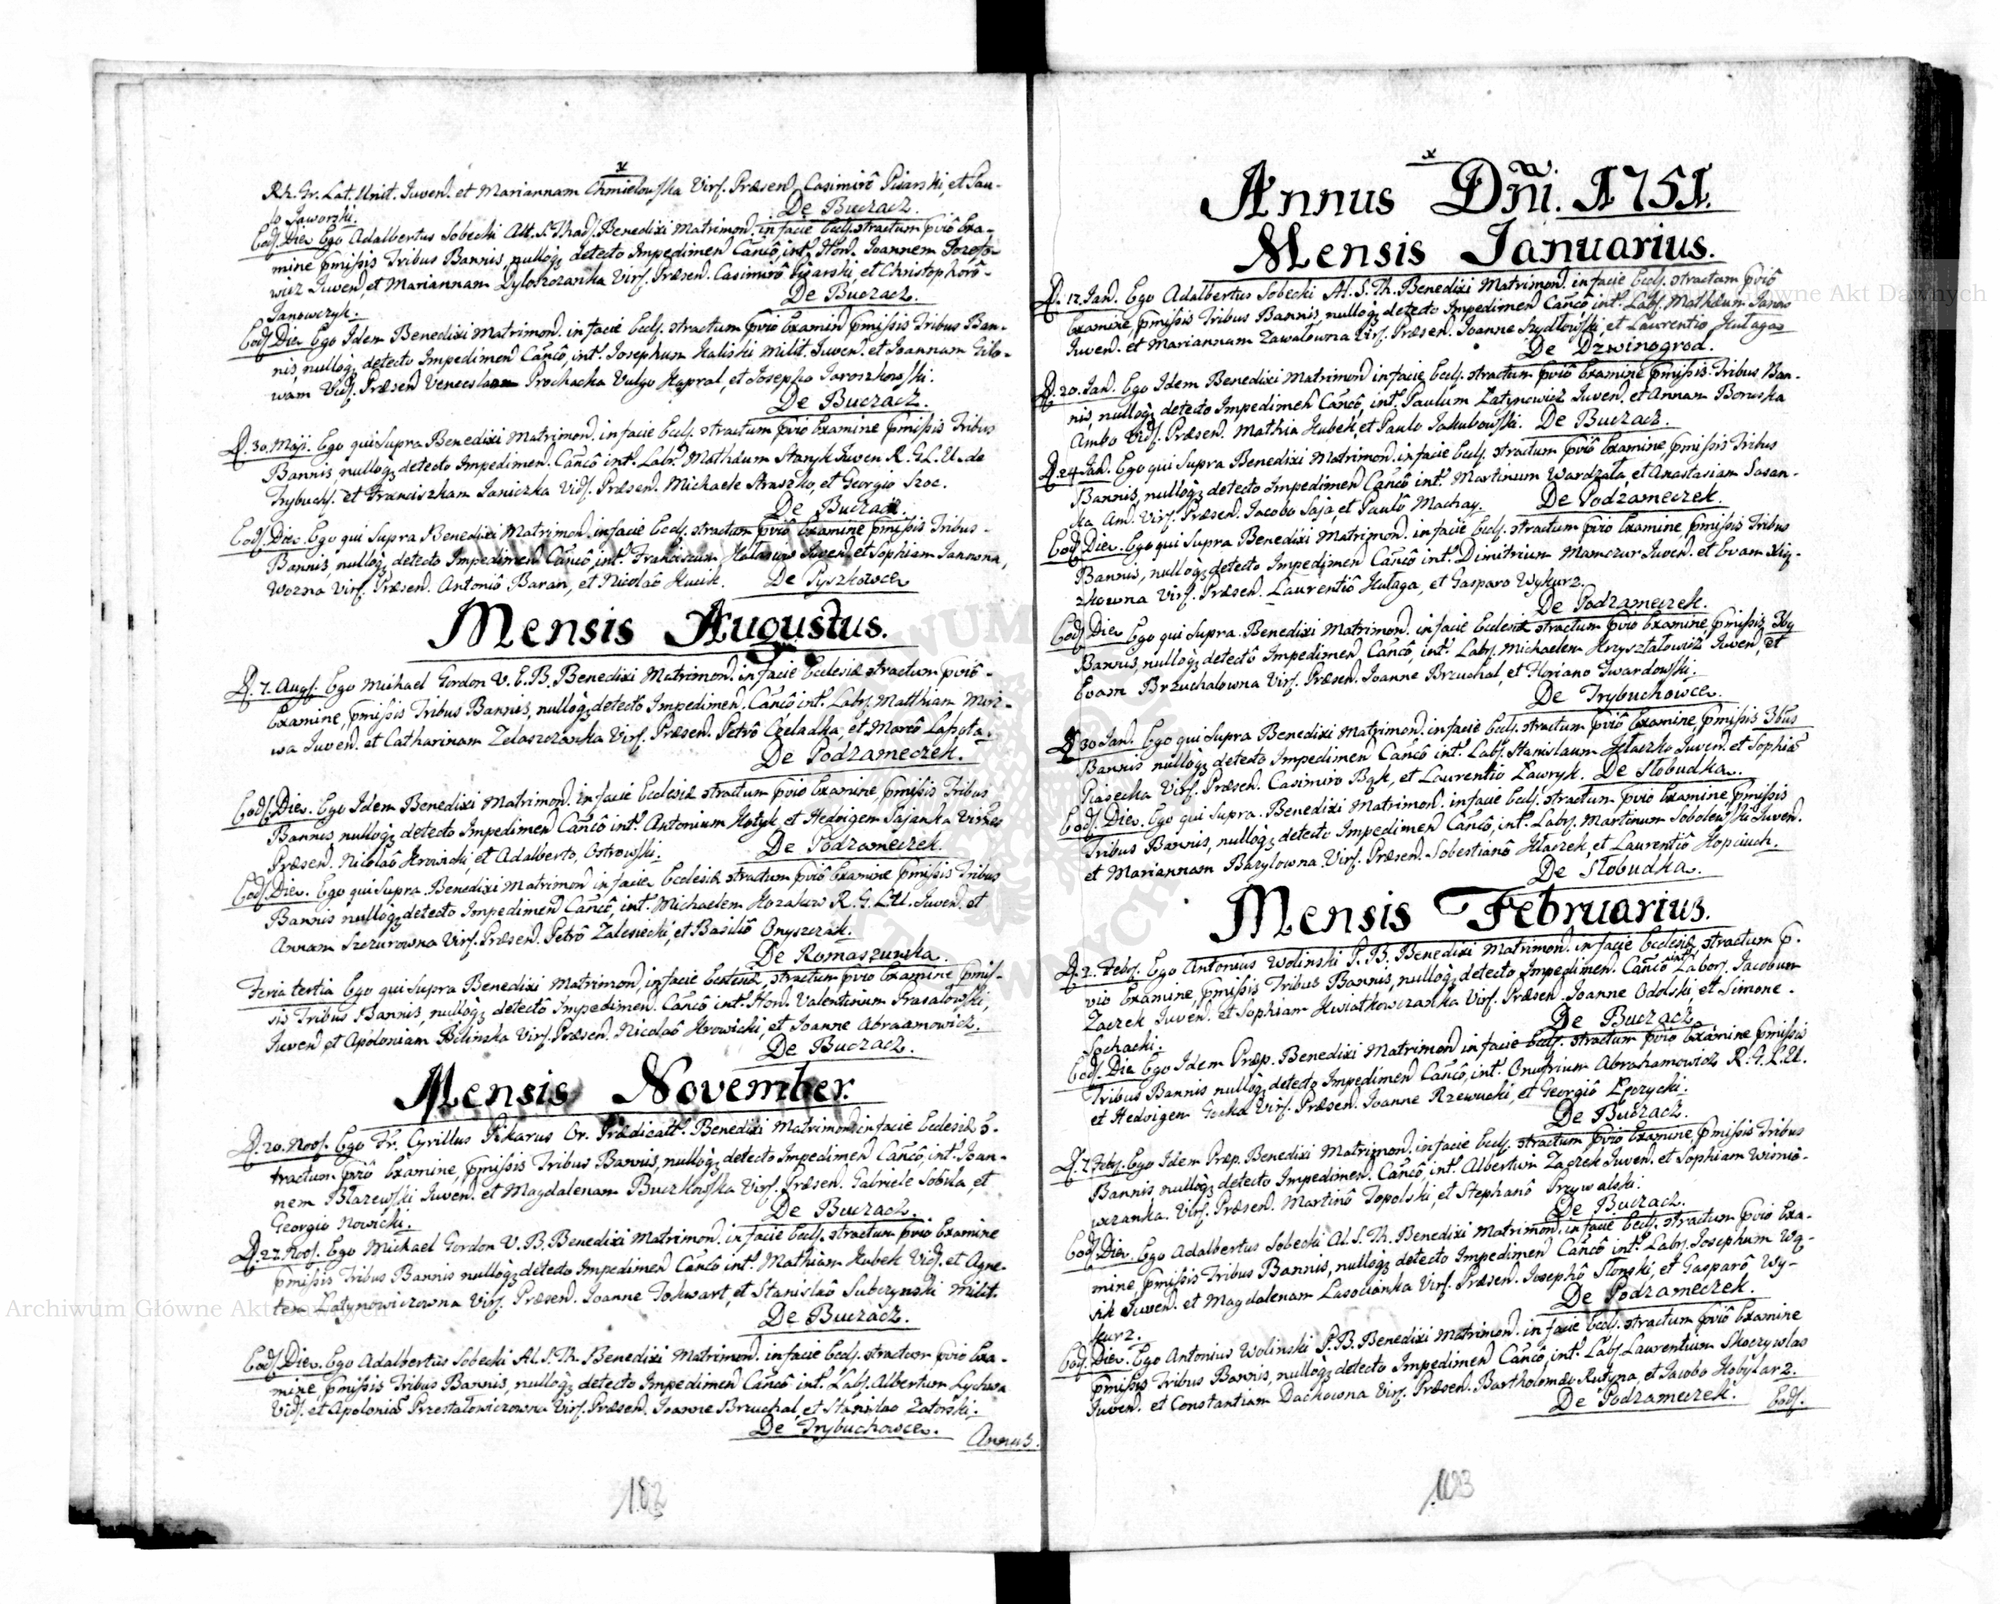 Rh. Gr. Lat. Unit. Juven. et Mariannam Chmielowska Virg. Præsend. Casimirô Pisarski, et Pau-
lo Jaworski.
De Buczacz.
Eod. Die. Ego Adalbertus Sobecki Alt. S. Thad. Benedixi Matrimon. in facie Eccl. stractum pviô Exa-
mine pmissis Tribus Bannis, nullòq; detecto Impedimen. Cancô, int. Hon. Joannem Jozefo-
wicz Juven, et Mariannam Dyloszozanka Virg. Præsen. Casimirô Pisarski, et Christophorô
Janowczyk.
De Buczacz.
Eod. Die Ego Idem Benedixi Matrimon. in facie Eccl. stractum pviô Examin pmissis Tribus Ban-
nis, nullòq; detecto Impedimen Cancô, int. Josephum Kaliski Milit. Juven. et Joannam Gilo-
wam Vid. Præsen Venceslaum Prochacka Vulgo Kapral, et Josepho Jaroszkowski.
De Buczacz.
D. 30. Maji. Ego qui Supra Benedixi Matrimon. in facie Eccl. stractum pviô Examine pmissis Tribus
Bannis, nullòq; detecto Impedimen. Cancô int. Lab. Mathæum Stanyk Juven R. G. L. U. de
Trybuch. et Franciszkam Janiczka Vid. Præsen. Michaele Straszko, et Georgio Szoc.
De Buczacz.
Eod. Die. Ego qui Supra Benedixi Matrimon. in facie Eccl. stractum pviô Examine pmissis Tribus
Bannis, nullòq; detecto Impedimen Cancô int. Franciscum Halasow Juven. et Sophiam Janowna,
Wozna Virg. Præsen. Antoniô Baran, et Nicolaô Huik. De Pyszkowce
Mensis Augustus.
D. 7. Aug. Ego Michael Gordon V. C. B. Benedixi Matrimon. in facie Ecclesiæ stractum pviô
Examine, pmissis Tribus Bannis, nullòq; detecto Impedimen. Cancô int. Lab. Matthiam Mirz-
wa Juven. et Catharinam Zelaszczanka Virg. Præsen. Petrô Czeladka, et Marcô Lapota.
De Podzameczek.
Eod. Die. Ego Idem Benedixi Matrimon. in facie Ecclesiæ stractum pviô Examine, pmissis Tribus
Bannis, nullòq; detecto Impedimen Cancô int. Antonium Kotyk et Hedvigem Sajanka Virg.
Præsen. Nicolaô Krowicki, et Adalberto Ostrowski.
De Podzameczek.
Eod. Die. Ego qui Supra Benedixi Matrimon. in facie Ecclesiæ stractum pviô Examine pmissis Tribus
Bannis nullòq; detecto Impedimen Cancô, int. Michaelem Kozakow R. G. L. U. Juven. et
Annam Szczurowna Virg. Præsen. Petrô Zalesiecki, et Basiliô Onyszczak.
De Romaszuwka.
Feria tertia Ego qui Supra Benedixi Matrimon, in facie Ecclesiæ, stractum pviô Examine pmis-
sis Tribus Bannis, nullòq; detectô Impedimen. Cancô int. Hon. Valentinum Prasalowski,
Juven. et Apoloniam Bilinska Virg. Præsen. Nicolaô Krowicki, et Joanne Abraamowicz.
De Buczacz.
Mensis November.
D. 20. Nov. Ego Fr. Cyrillus Pikarus Or. Prædicat. Benedixi Matrimon. in facie Ecclesiæ s.
tractum pviô Examine, pmissis Tribus Bannis, nullòq; detecto Impedimen Cancô, int. Joan-
nem Blazewski Juven. et Magdalenam Buczkowska Virg. Præsen. Gabriele Sobila, et
Georgio Nowicki.
De Buczacz.
D. 27. Nov. Ego Michael Gordon V. B. Benedixi Matrimon. in facie Eccl. stractum pviô Examine
pmissis Tribus Bannis nullòq; detecto Impedimen Cancô int. Mathiam Kubek Vid. et Agne-
tem Latynowiczowna Virg. Præsen. Joanne Tokwart, et Stanislaô Subczynski Milit.
De Buczacz.
Eod. Die. Ego Adalbertus Sobecki Al. S. Th. Benedixi Matrimon. in facie Eccl. stractum pviô Exa-
mine, pmissis Tribus Bannis, nullòq; detecto Impedimen Cancô int. Lab. Albertum Lychwa
Vid. et Apoloniâ Przestalowiczowna Virg. Præsen. Joanne Brzuchal, et Stanislao Zatorski.
De Trybuchowce.
Annus.
182
Annus Dñi. 1751.
Mensis Januarius.
D. 17. Jan. Ego Adalbertus Sobecki Al. S. Th. Benedixi Matrimon. in facie Eccl. stractum pviô
Examine, pmissis Tribus Bannis, nullòq; detecto Impedimen Cancô, int. Lab. Mathæum Janow
Juven. et Mariannam Zawalowna Virg. Præsen. Joanne Szydlowski, et Laurentio Kulaga
De Dzwinogrod.
D. 20. Jan. Ego Idem Benedixi Matrimon. in facie Eccl. stractum pviô Examine pmissis Tribus Ban-
nis, nullòq; detecto Impedimen Cancô, int. Paulum Latynowicz Juven. et Annam Boruska
Ambo Vid. Præsen. Mathia Kubek, et Paulo Jakubowski. De Buczacz.
D. 24 Jan. Ego qui Supra Benedixi Matrimon. in facie Eccl. stractum pviô Examine pmissis Tribus
Bannis, nullòq; detecto Impedimen Cancô int. Martinum Wardzala, et Anastasiam Sasan-
ka Am. Virg. Præsen. Jacobo Saja, et Paulô Machay. De Podzameczek.
Eod. Die. Ego qui Supra Benedixi Matrimon. in facie Eccl. stractum pviô Examine, pmissis Tribus
Bannis, nullòq; detecto Impedimen Cancô int. Dimitrium Mamczur Juven. et Evam Xię-
zkowna Virg. Præsen. Laurentiô Kulaga, et Gasparo Wykurz.
De Podzameczek.
Eod. Die Ego qui Supra. Benedixi Matrimon. in facie Ecclesiæ stractum pviô Examine, pmissis 3by
Bannis, nullòq; detectô Impedimen Cancô, int. Lab. Michaelem Krzysztalowicz Juven, et
Evam Brzuchalowna Virg. Præsen. Joanne Brzuchal, et Floriano Twardowski.
De Trybuchowce.
D 30 Jan. Ego qui Supra Benedixi Matrimon. in facie Eccl. stractum pviô Examine pmissis 3bus
Bannis nullòq; detecto Impedimen Cancô int. Lab. Stanislaum Hlaszko Juven. et Sophiâ
Piasecka Virg. Præsen. Casimiro Bąk, et Laurentio Ławryk. De Slobudka.
Eod. Die. Ego qui Supra. Benedixi Matrimon. in facie Eccl. stractum pviô Examine pmissis
Tribus Bannis, nullòq; detecto Impedimen Cancô, int. Lab. Martinum Sobolewski Juven.
et Mariannam Bazylowna Virg. Præsen. Sebestianô Hlaszek, et Laurentiô Kopciuch.
De Slobudka.
Mensis Februarius.
D. 2. Febr. Ego Antonius Wolinski P. B. Benedixi Matrimon. in facie Ecclesiæ, stractum p.
vio Examine, pmissis Tribus Bannis, nullòq; detecto Impedimen. Cancô int. Labor. Jacobum
Zaczek Juven. et Sophiam Kwiatkowczanka Virg. Præsen. Joanne Odolski, et Simone
Sochacki.
De Buczacz
Eod. Die Ego Idem Præp. Benedixi Matrimon in facie Eccl. stractum pviô Examine pmissis
Tribus Bannis nullòq; detecto Impedimen Cancô, int. Onufrium Abrahamowicz R. G. L. U.
et Hedvigem Gocka Virg. Præsen. Joanne Rzewucki, et Georgiô Lpozycki.
De Buczacz.
D. 7. Feb. Ego Idem Præp. Benedixi Matrimon. in facie Eccl. stractum pviô Examine, pmissis Tribus
Bannis nullòq; detecto Impedimen. Cancô, int. Albertum Zaczek Juven. et Sophiam Wisnio-
wczanka. Virg. Præsen. Martinô Topolski, et Stephanô Przywalski.
De Buczacz.
Eod. Die. Ego Adalbertus Sobecki Al. S. Th. Benedixi Matrimon. in facie Eccl. stractum pviô Exa-
mine, pmissis Tribus Bannis, nullòq; detecto Impedimen Cancô int. Lab. Josephum Wą-
sik Juven. et Magdalenam Lasocianka Virg. Præsen. Josephô Slonski, et Gasparô Wy-
kurz.
De Podzameczek.
Eod. Die. Ego Antonius Wolinski P. B. Benedixi Matrimon. in facie Eccl. stractum pviô Examine
pmissis Tribus Bannis, nullòq; detecto Impedimen Cancô, int. Lab. Laurentium Skoczywlas
Juven. et Constantiam Dackowna Virg. Præsen. Bartholomæo Rutyna, et Jacobo Kobylarz.
De Podzameczek. Eod.
183
Archiwum Główne Akt Dawnych